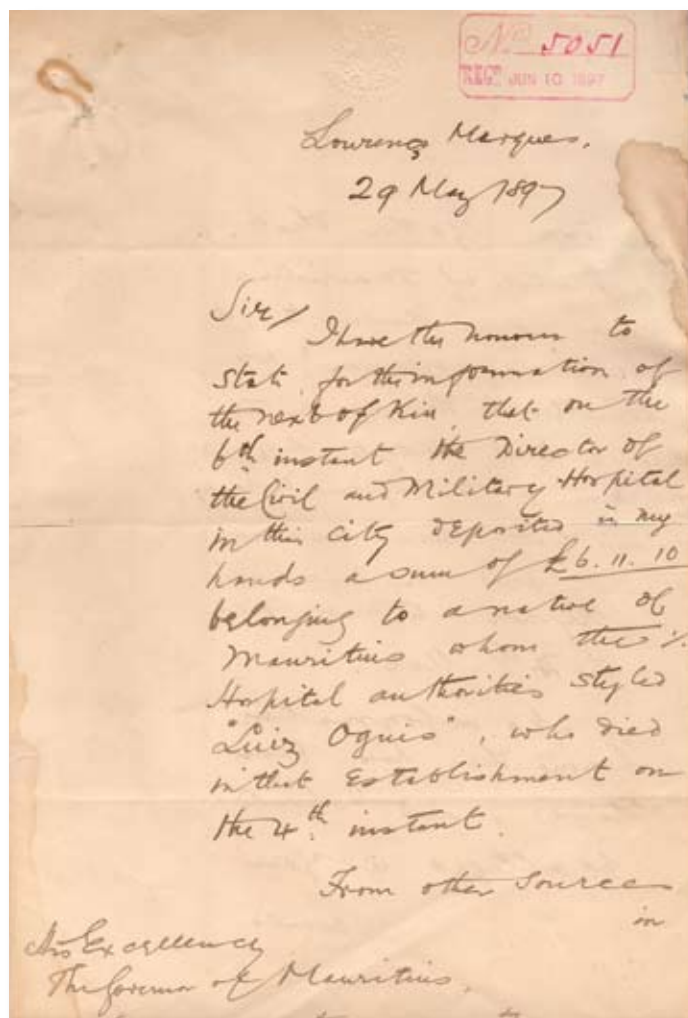 No 5051
REGD JUN 10 1897
Lourenço Marques.
29 May 1897
Sir/
I have the honour to
state, for the information of
the next of Kin, that on the
6th instant the Director of
the Civil and Military Hospital
in this City deposited in my
hands a sum of £6.11.10
belonging to a native of
Mauritius whom the
Hospital authorities styled
"Luiz Oguis", who died
in that Establishment on
the 4th instant.
From other sources
in
His Excellency
The Governor of Mauritius,